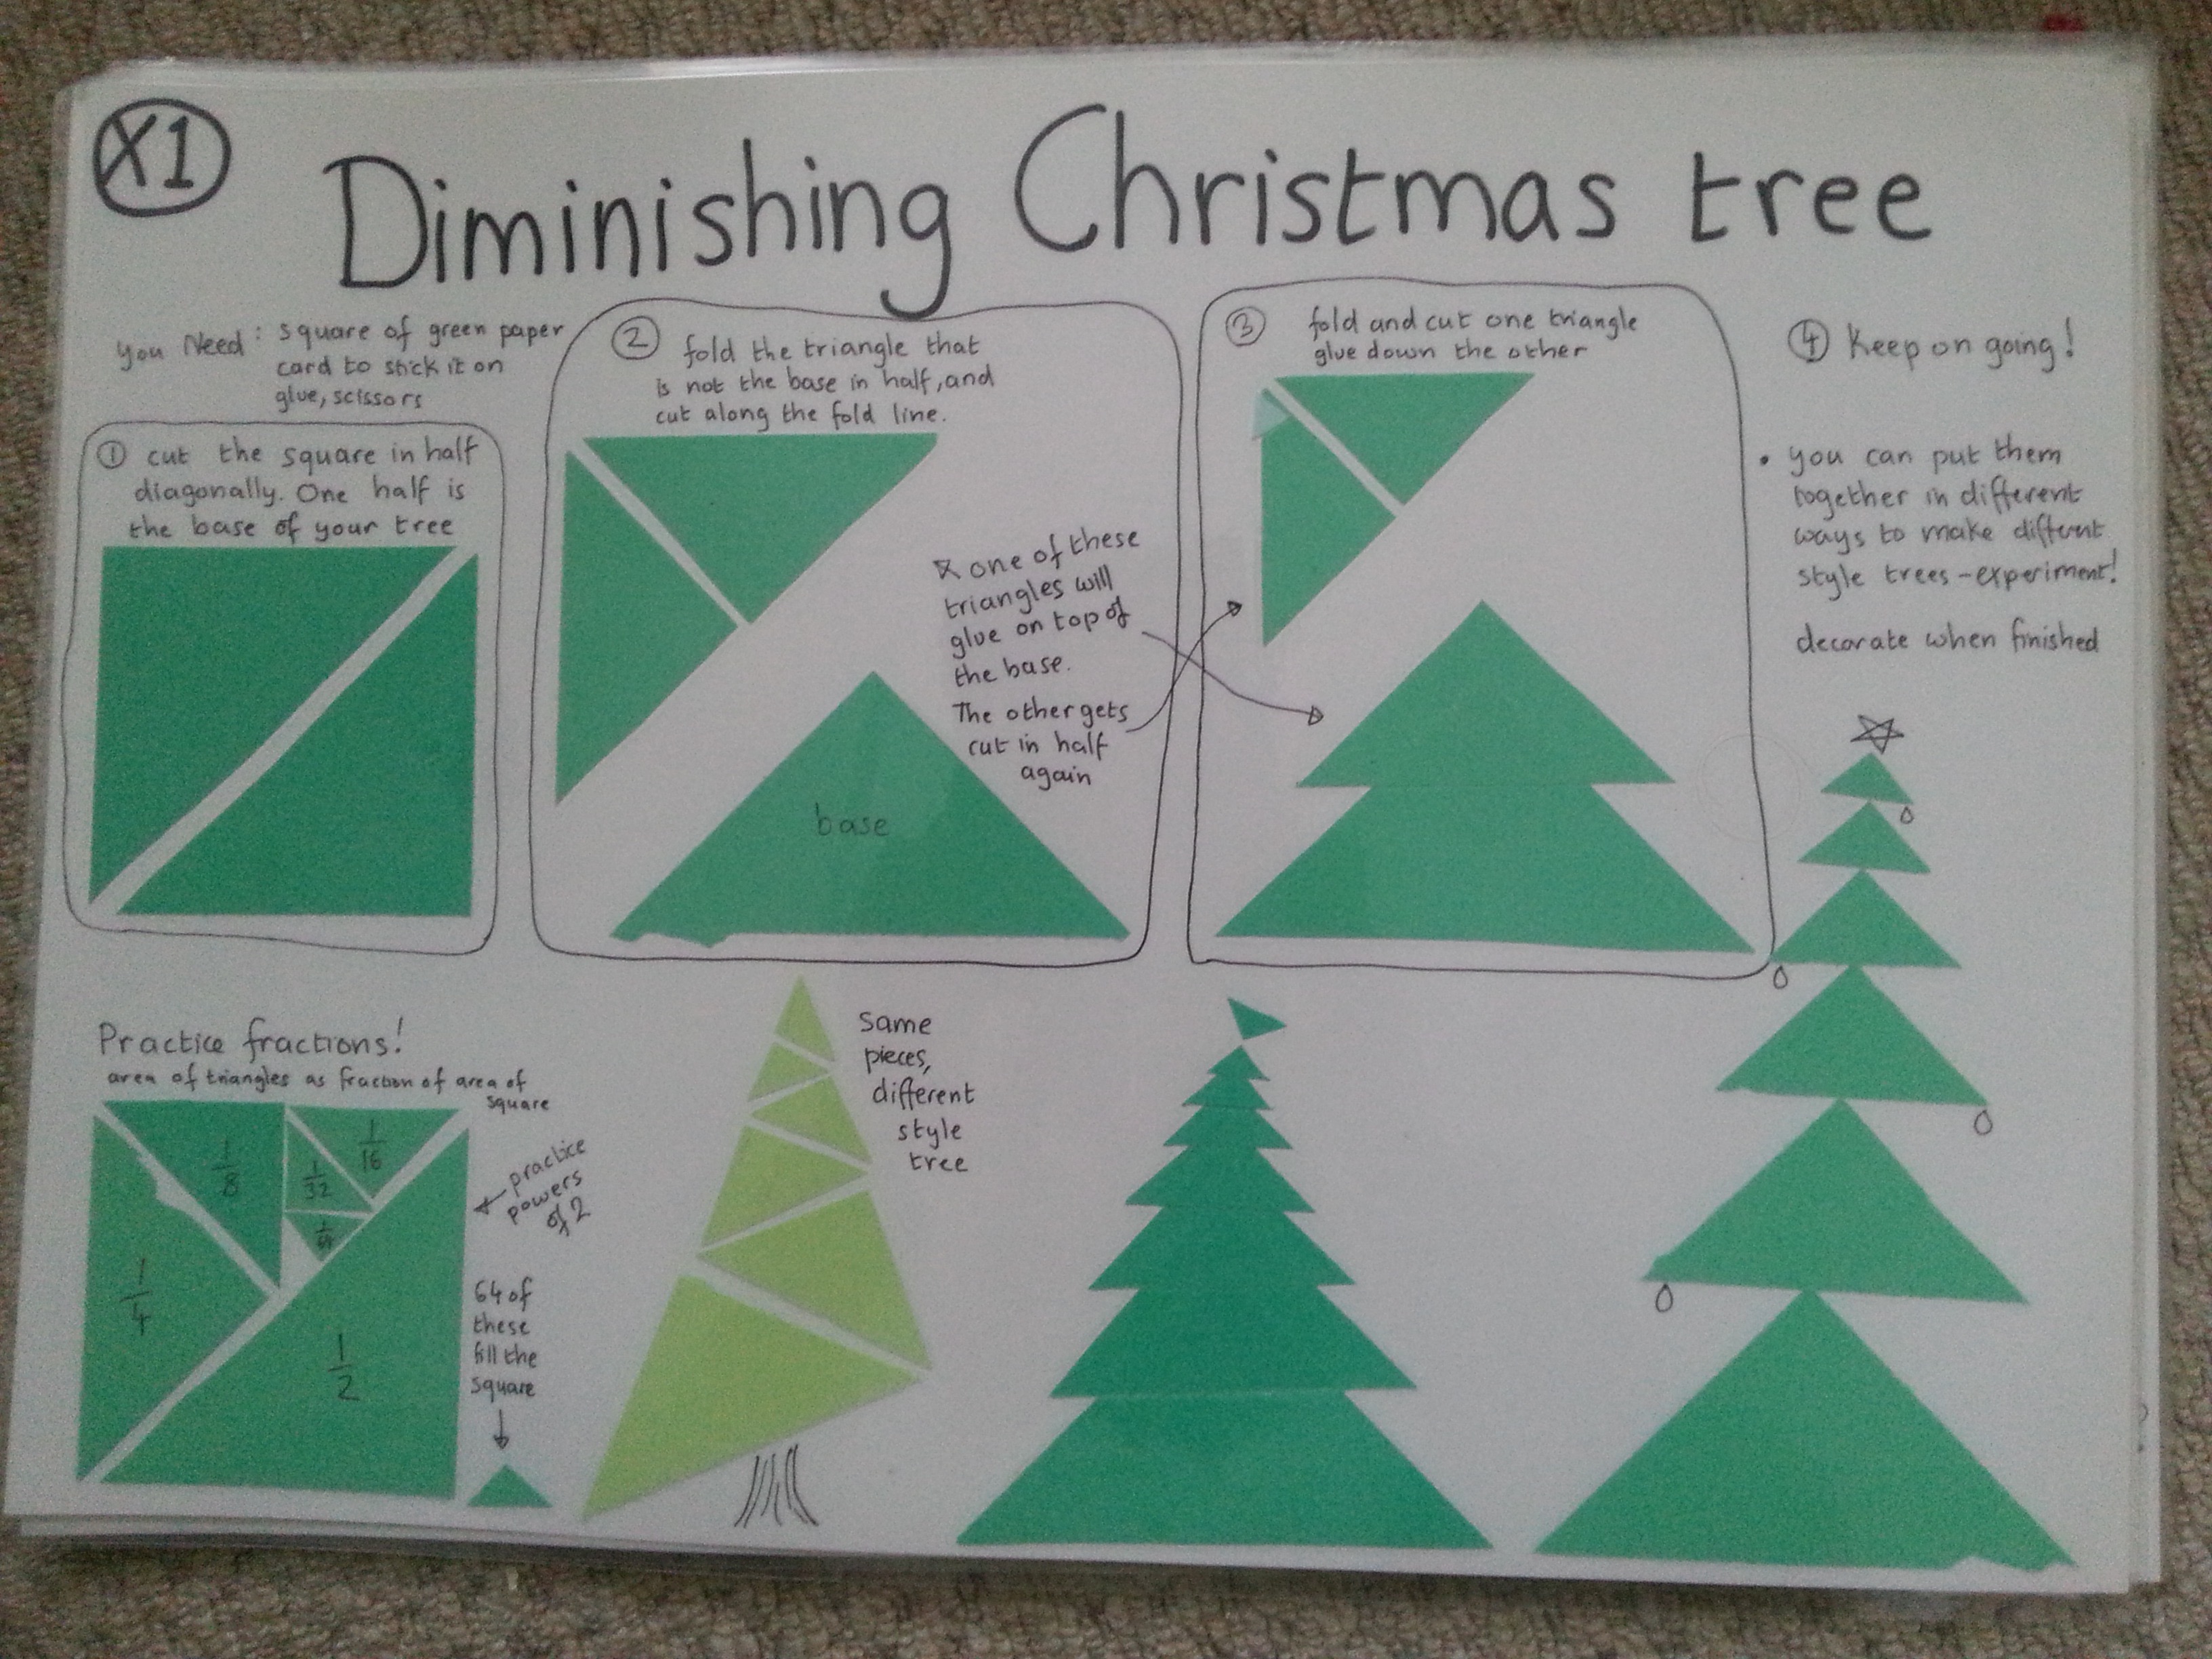 X1
Diminishing Christmas tree
you Need: square of green paper
card to stick it on
glue, scissors
① cut the square in half
diagonally. One half is
the base of your tree
② fold the triangle that
is not the base in half, and
cut along the fold line.
one of these
triangles will
glue on top of
the base.
The other gets
cut in half
again
base
③ fold and cut one triangle
glue down the other
④ Keep on going!
• you can put them
together in different
ways to make different
style trees - experiment!
decorate when finished
Practice fractions!
area of triangles as fraction of area of
square
1/8
1/16
1/32
1/64
1/4
1/2
practice
powers
of 2
64 of
these
fill the
square
Same
pieces,
different
style
tree